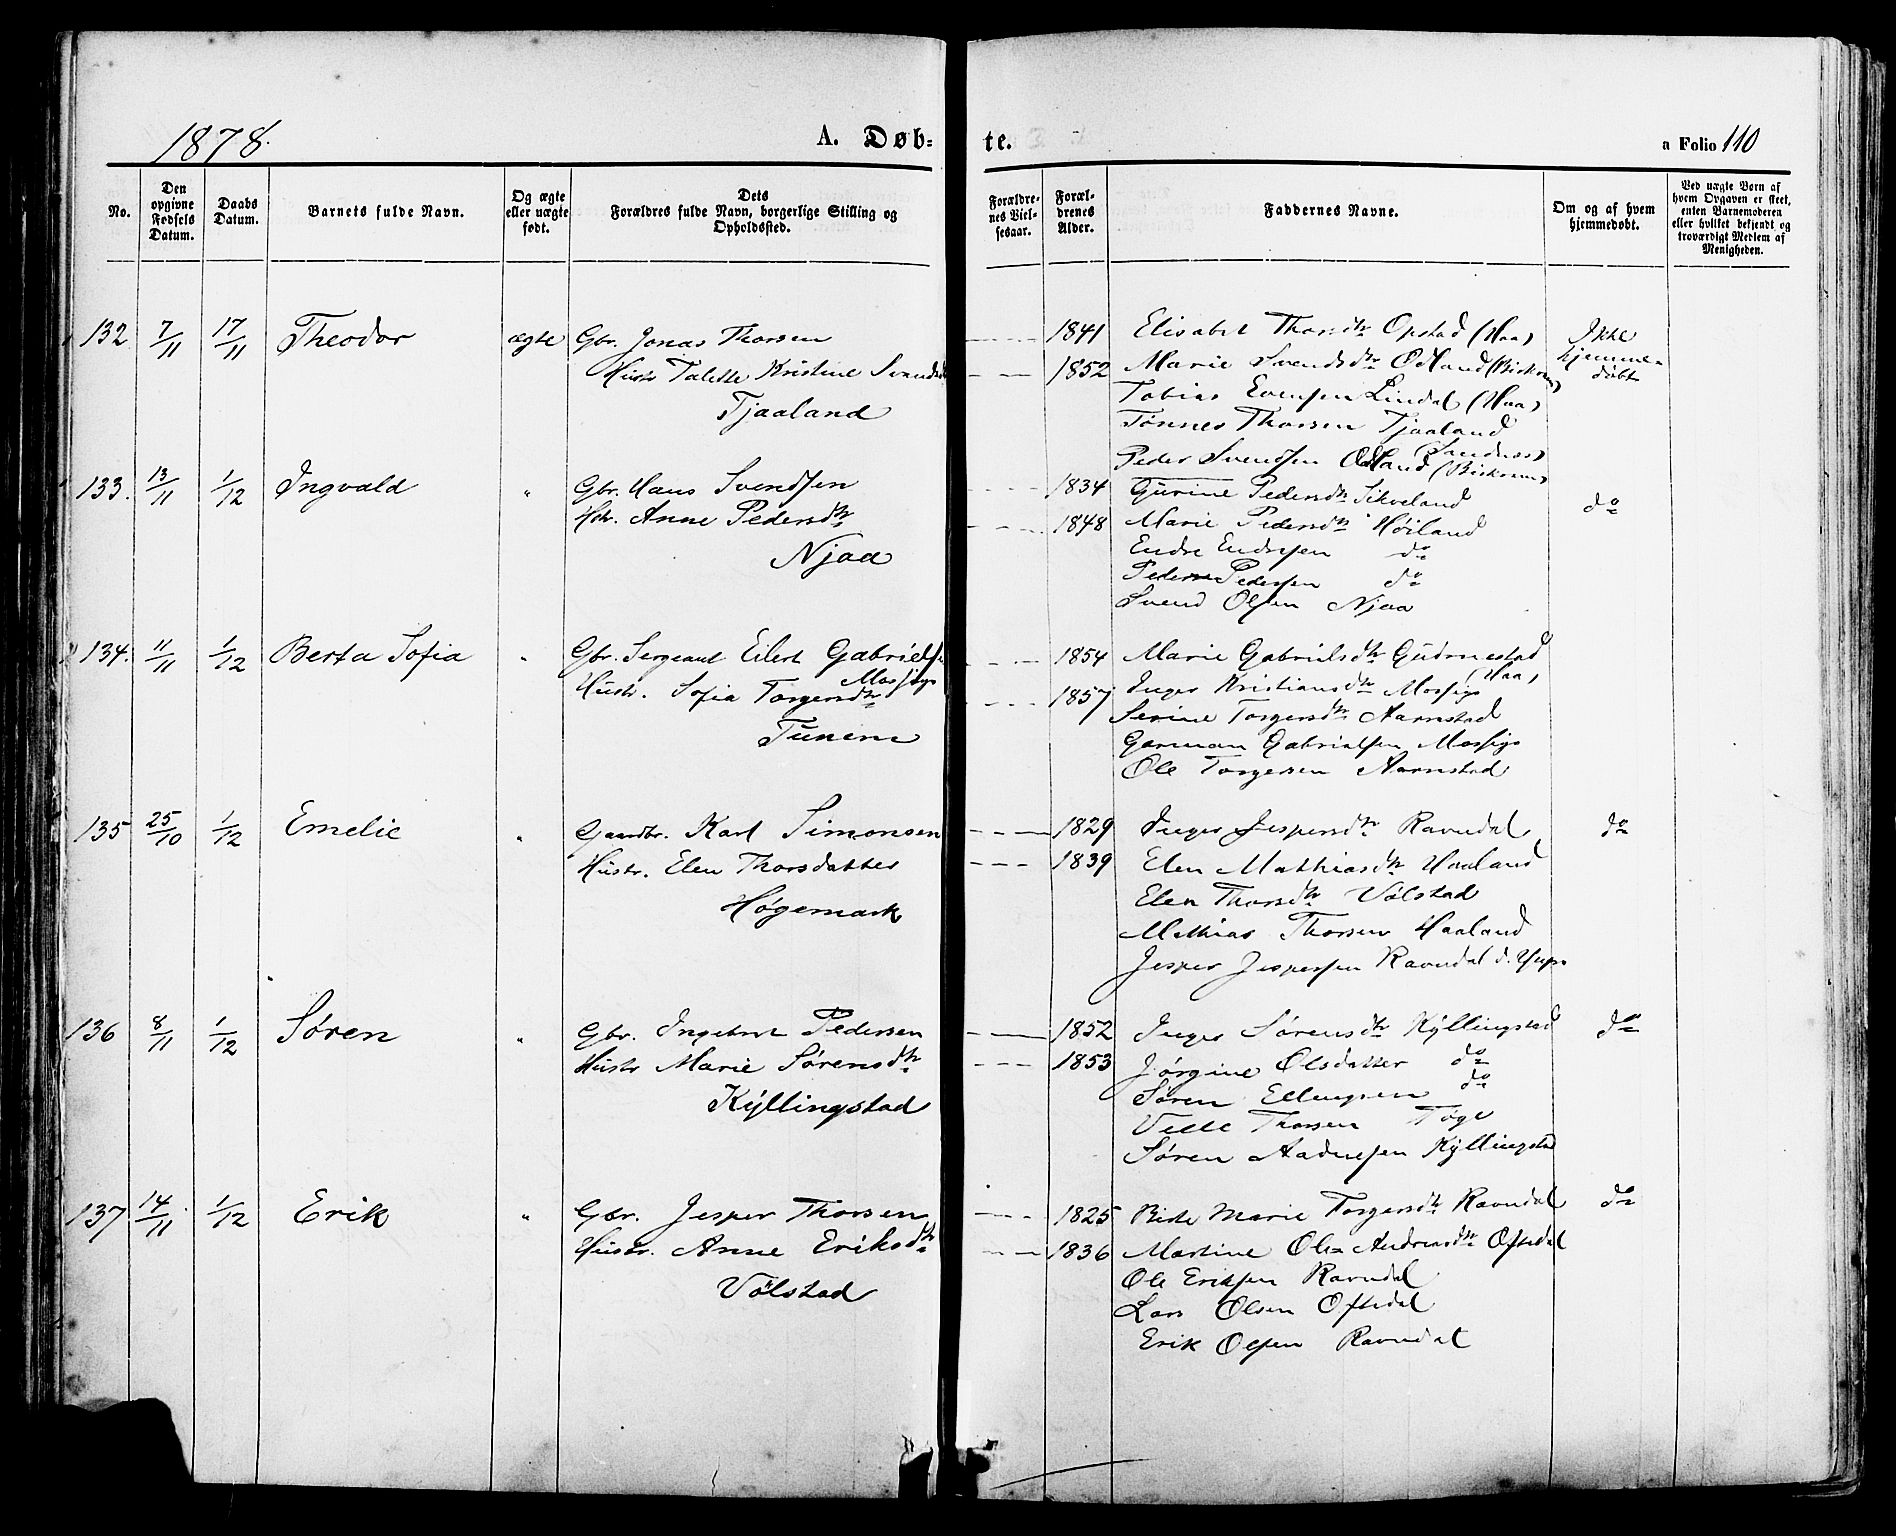 1878.
A. Døb-
te.
a Folio 110
No.
Den opgivne Fødsels Datum.
Daabs Datum.
Barnets fulde Navn.
Og ægte eller uægte født.
Dets Forældres fulde Navn, borgerlige Stilling og Opholdssted.
Forældrenes Vielsesaar.
Forældrenes Alder.
Faddernes Navne.
Om og af hvem hjemmedøbt.
Ved uægte Børn af hvem Opgaven er skeet, enten Barnemoderen eller hvilket bekjendt og troværdigt Medlem af Menigheden.
132 7/11 17/11 Theodor ægte Gbr. Jonas Thorsen
Hustr Talette Kristine Svendsd
Tjaaland
1841
1852
Elisabet Thorsdtr Opstad (Haa)
Marie Svendsdtr Ødland (Birkrem)
Tobias Evensen Lindal (Haa)
Tønnes Thorsen Tjaaland
Peder Svendsen Ødland (Birkrem)
Ikke hjemme-
døbt
133. 13/11 1/12 Ingvald " Gbr. Hans Svendsen
Hstr. Anne Pedersdtr
Njaa
1834
1848
(Sandnes)
Gurine Pedersdtr Sikveland
Marie Pedersdtr Høiland
Endre Endresen do
Peder Pedersen do
Svend Olsen Njaa
do
134. 11/11 1/12 Berta Sofia " Gbr. Sergeant Eilert Gabrielsen
Mossige
Hustr. Sofia Torgersdtr
Tunem
1854
1857
Marie Gabrielsdtr Gudmestad
(Haa)
Inger Kristiansdtr Mossige
Serine Torgersdtr Aarnstad
Garman Gabrielsen Mossige
Ole Torgersen Aarnstad
135 25/10 1/12 Emelie " Gaardbr. Karl Simonsen
Hustr. Elen Thorsdatter
Høgemark
1829
1839
Inger Jespersdtr Ravndal
Elen Mathiasdtr Haaland
Elen Thorsdtr Vølstad
Mathias Thorsen Haaland
Jesper Jespersen Ravndal d. Yngr.
do
136 8/11 1/12 Søren " Gbr. Ingebret Pedersen
Hustr Marie Sørensdtr
Kyllingstad
1852
1853
Inger Sørensdtr Kyllingstad
Jørgine Olsdatter do
Søren Ellingsen do
Velle Thorsen Tøge
Søren Aadnesen Kyllingstad
do
137 14/11 1/12 Erik " Gbr. Jesper Thorsen
Hustr. Anne Eriksdtr
Vølstad
1825
1836
Birte Marie Torgersdtr Ravndal
Martine Andreasdtr Oftedal
Ole Eriksen Ravndal
Lars Olsen Oftedal
Erik Olsen Ravndal
do